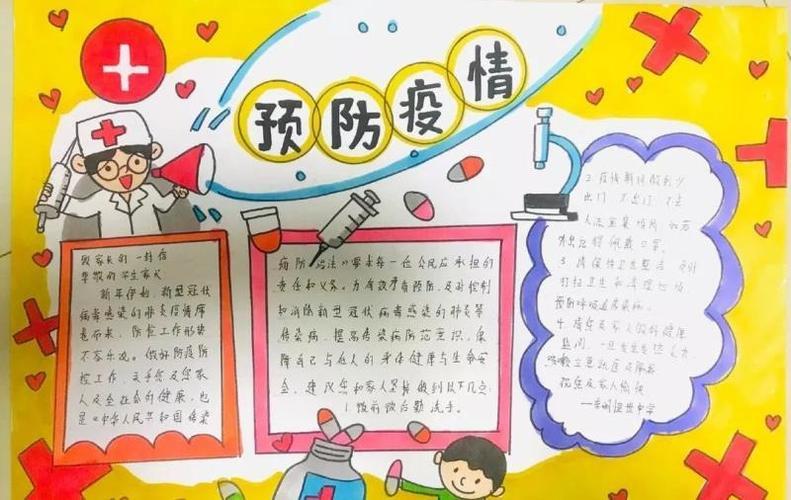 预防疫情
致家长的一封信
尊敬的学生家长
新年伊始,新型冠状
病毒感染的肺炎疫情席
卷而来,防控工作形势
不容乐观。做好防疫防
控工作,关乎您及您家
人及全社会的健康,也
是《中华人民共和国传染
病防治法》要求每一位公民应承担的
责任和义务。为有效严密预防、及时控制
和消除新型冠状病毒感染的肺炎等
传染病,提高传染病防范意识,保
障自己与他人的身体健康与生命安
全,建议您和家人坚持做到以下几点
1 饭前饭后勤洗手。
2. 疫情期间做到少
出门 不出门 不去
人流密集场所 如若
外出 佩戴口罩。
3. 确保卫生整洁 及时
打扫卫生和清理垃圾
预防呼吸道传染病。
4. 请您及家人做好健康
监测,一旦发生发烧
咳嗽立即就医
祝您及家人愉快